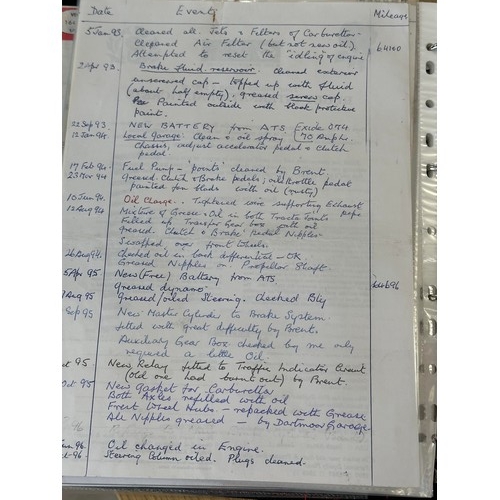 Date Events Mileage
5 Jan 93. Cleaned all Jets & Filters of Carburettor
Cleaned Air Filter (but not new oil). 64100
Attempted to reset the "idling" of engine
2 Apr 93. Brake fluid reservoir. Cleaned exterior
unscrewed cap - topped up with fluid
(about half empty), greased screw cap.
Painted outside with black protective
paint.
22 Sep 93 NEW BATTERY from ATS (Exide 074
12 Jan 94. Local Garage: Clean & oil spray 70 Amp/hr
chassis, adjust accelerator pedal & clutch
pedal
17 Feb 94. Fuel Pump - 'points' cleaned by Brent.
23 Mar 94 Greased Clutch & Brake pedals; oil throttle pedal
painted fen studs with oil (rusty)
10 June 94. Oil Change. - Tightened wire supporting Exhaust pipe
12 Aug 94 Mixture of Grease & Oil in both Tracta Joints
Filled up Transfer Gear box with oil
Greased Clutch & Brake Pedal Nipples
Swapped over front wheels.
26 Aug 94. Checked oil in back differential - OK
Greased Nipples on Propellor Shaft
5 Apr 95 New (Free) Battery from ATS
Greased dynamo
Aug 95 Greased/oiled Steering. Checked Bly
Sep 95 New Master Cylinder to Brake System
fitted with great difficulty by Brent.
Auxiliary Gear Box checked by me only
required a little Oil.
95 New Relay fitted to Traffic Indicator Circuit
(old one had burnt out) by Brent.
Oct 95 New gasket for Carburettor
Both Axles refilled with oil
Front Wheel Hubs - repacked with Grease
96 All Nipples greased - by Dartmoor Garage
96. Oil changed in Engine.
96. Steering Column oiled. Plugs cleaned.